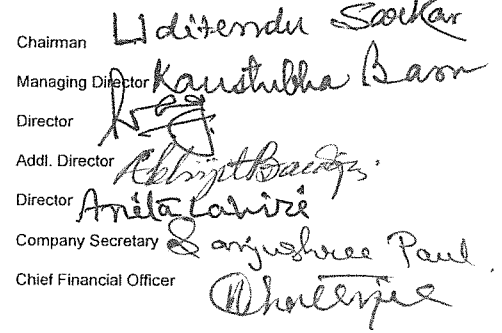 Chairman Uditendu Sarkar
Managing Director Kaustubha Basu
Director
Addl. Director Abhijit
Director Anita Lahiri
Company Secretary Sanjushree Paul
Chief Financial Officer